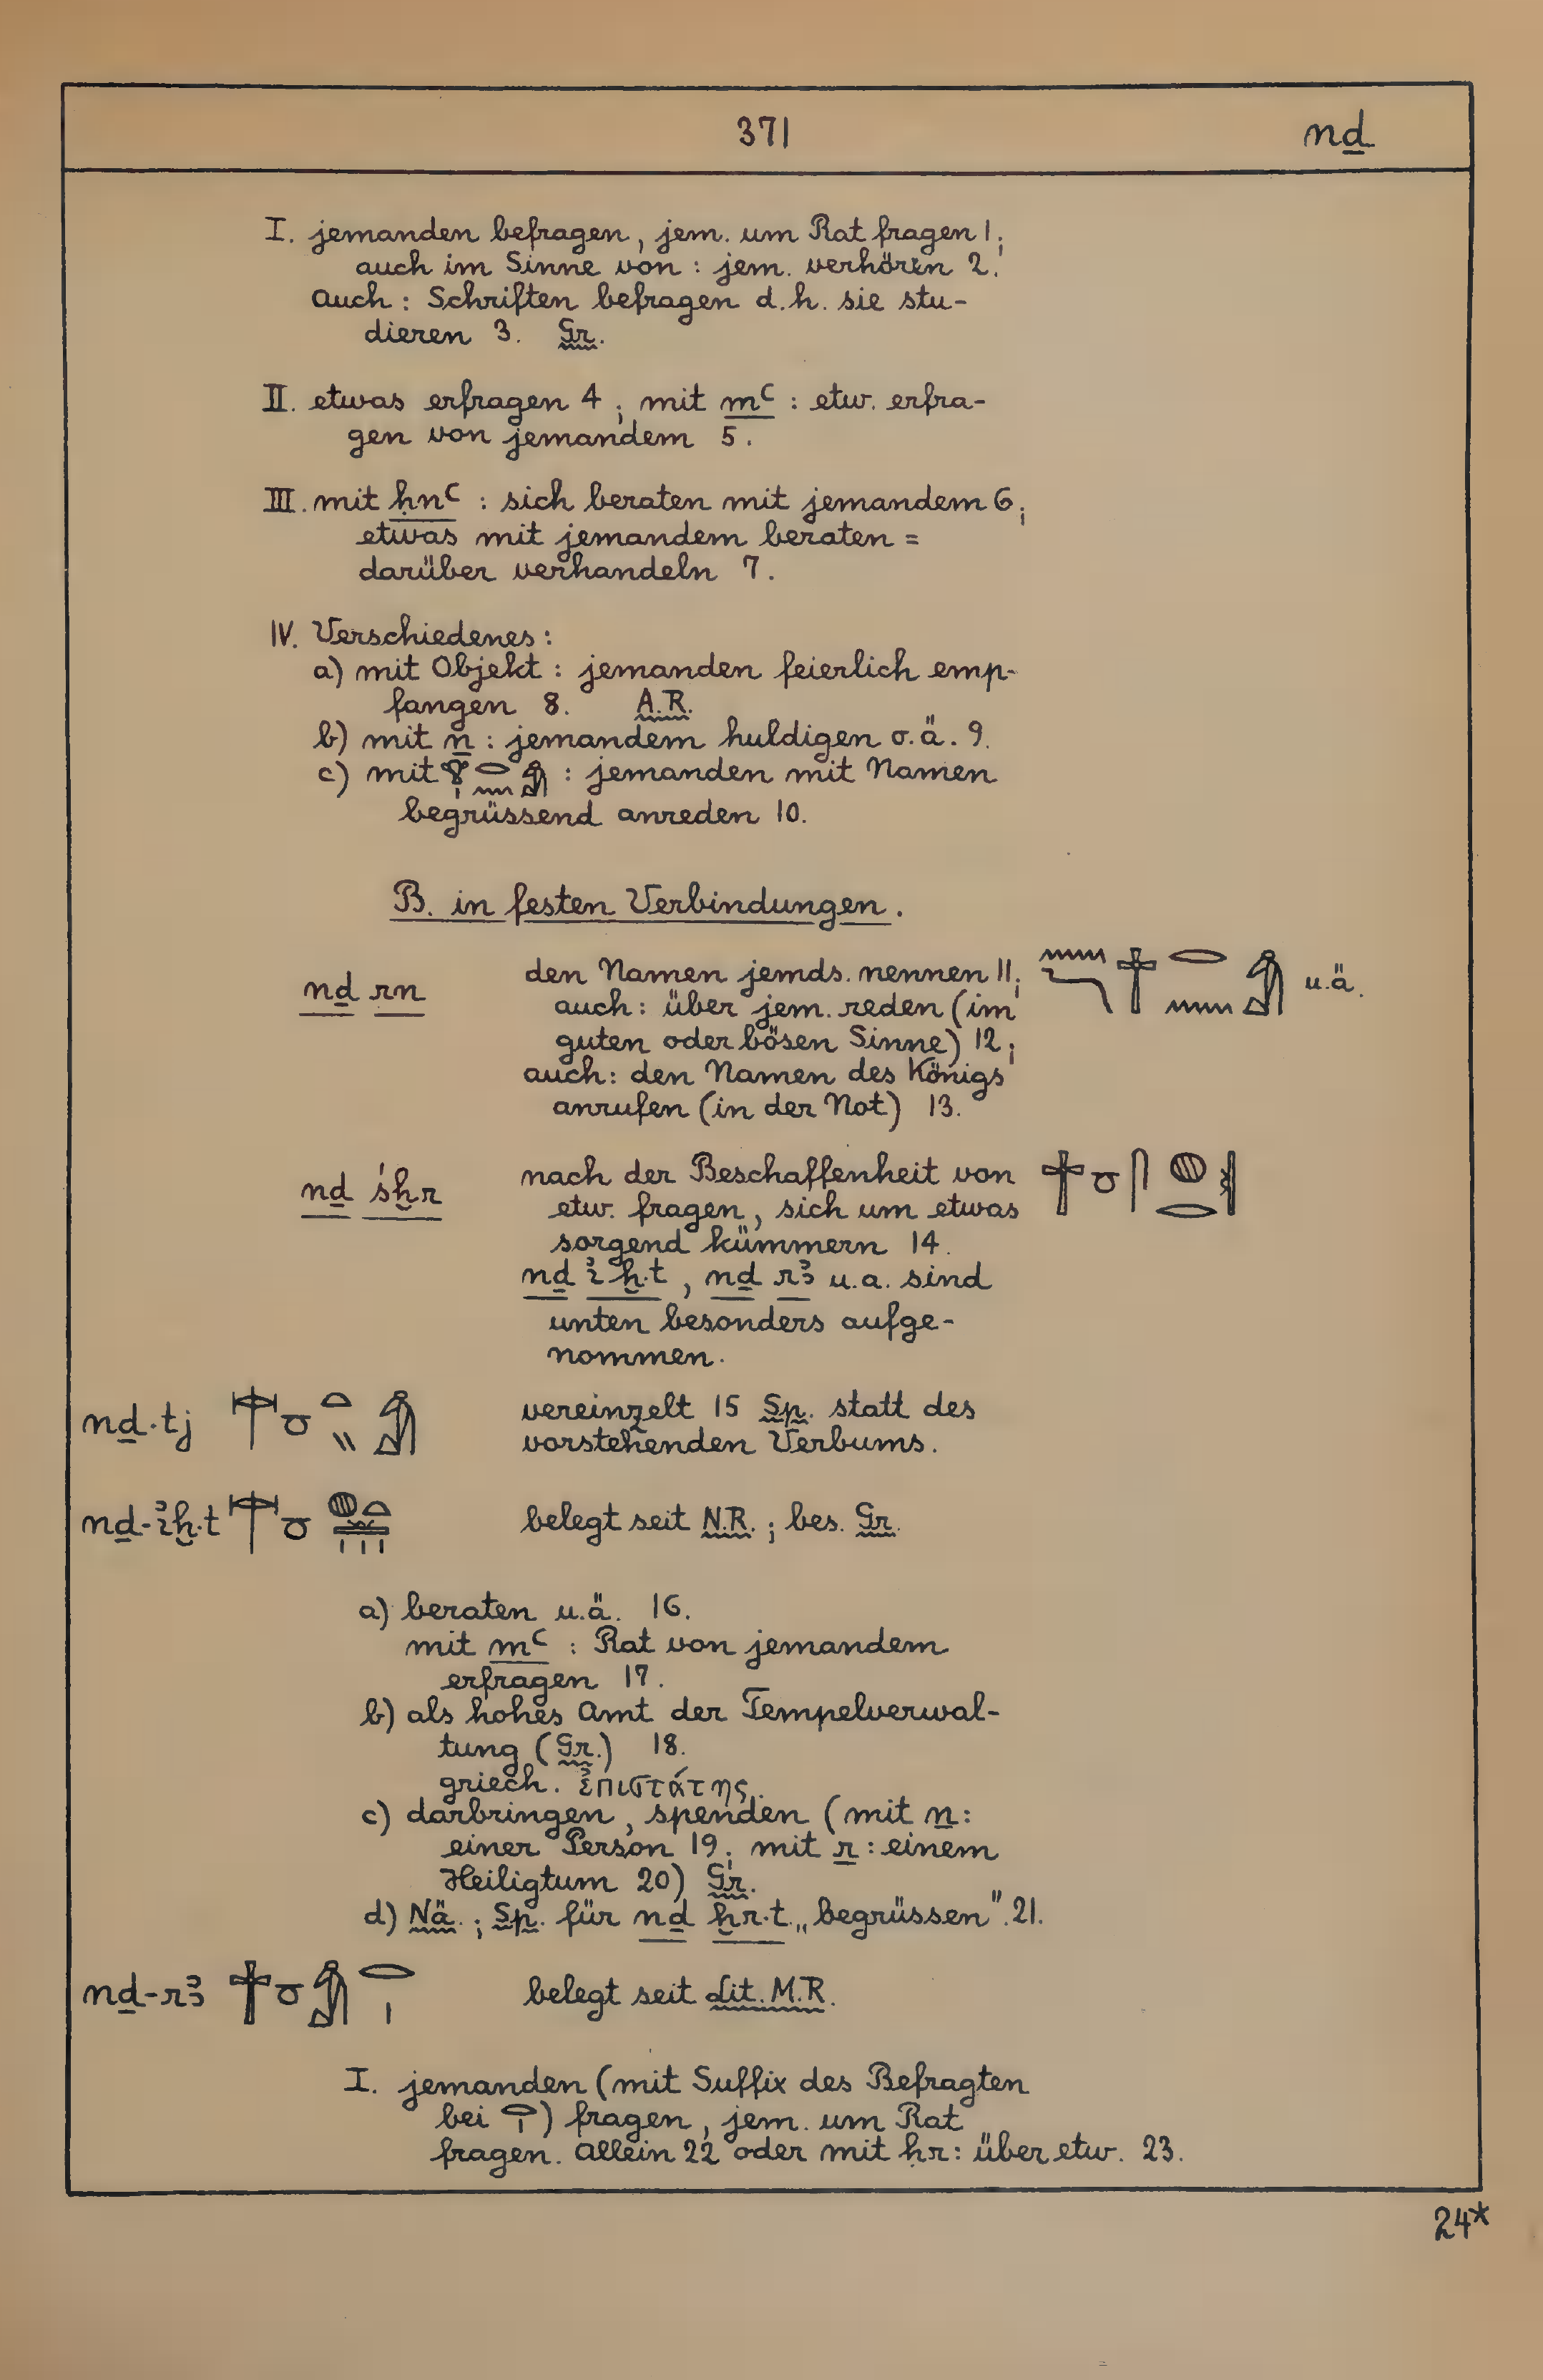 371 nḏ
I. jemanden befragen, jem. um Rat fragen 1;
auch im Sinne von : jem. verhören 2.
Auch : Schriften befragen d.h. sie stu-
dieren 3. Gr.
II. etwas erfragen 4; mit mꜥ : etw. erfra-
gen von jemandem 5.
III. mit ḥnꜥ : sich beraten mit jemandem 6;
etwas mit jemandem beraten =
darüber verhandeln 7.
IV. Verschiedenes :
a) mit Objekt : jemanden feierlich emp-
fangen 8. A.R.
b) mit n : jemandem huldigen o.ä. 9.
c) mit 𓁷𓏤𓂋𓈖𓀁 : jemanden mit Namen
begrüssend anreden 10.
B. in festen Verbindungen.
nḏ rn den Namen jemds. nennen 11; u.ä.
auch: über jem. reden (im
guten oder bösen Sinne) 12;
auch: den Namen des Königs
anrufen (in der Not) 13.
nḏ śḫr nach der Beschaffenheit von
etw. fragen, sich um etwas
sorgend kümmern 14.
nḏ ꞽḫ·t, nḏ rꜣ u.a. sind
unten besonders aufge-
nommen.
nḏ·tj vereinzelt 15 Sp. statt des
vorstehenden Verbums.
nḏ-ꞽḫ·t belegt seit N.R. ; bes. Gr.
a) beraten u.ä. 16.
mit mꜥ : Rat von jemandem
erfragen 17.
b) als hohes Amt der Tempelverwal-
tung (Gr.) 18.
griech. ἐπιστάτης.
c) darbringen, spenden (mit n:
einer Person 19; mit r : einem
Heiligtum 20) Gr.
d) Nä. ; Sp. für nḏ ḫr·t „begrüssen". 21.
nḏ-rꜣ belegt seit Lit. M.R.
I. jemanden (mit Suffix des Befragten
bei 𓂋𓏤) fragen, jem. um Rat
fragen. Allein 22 oder mit ḥr: über etw. 23.
24*